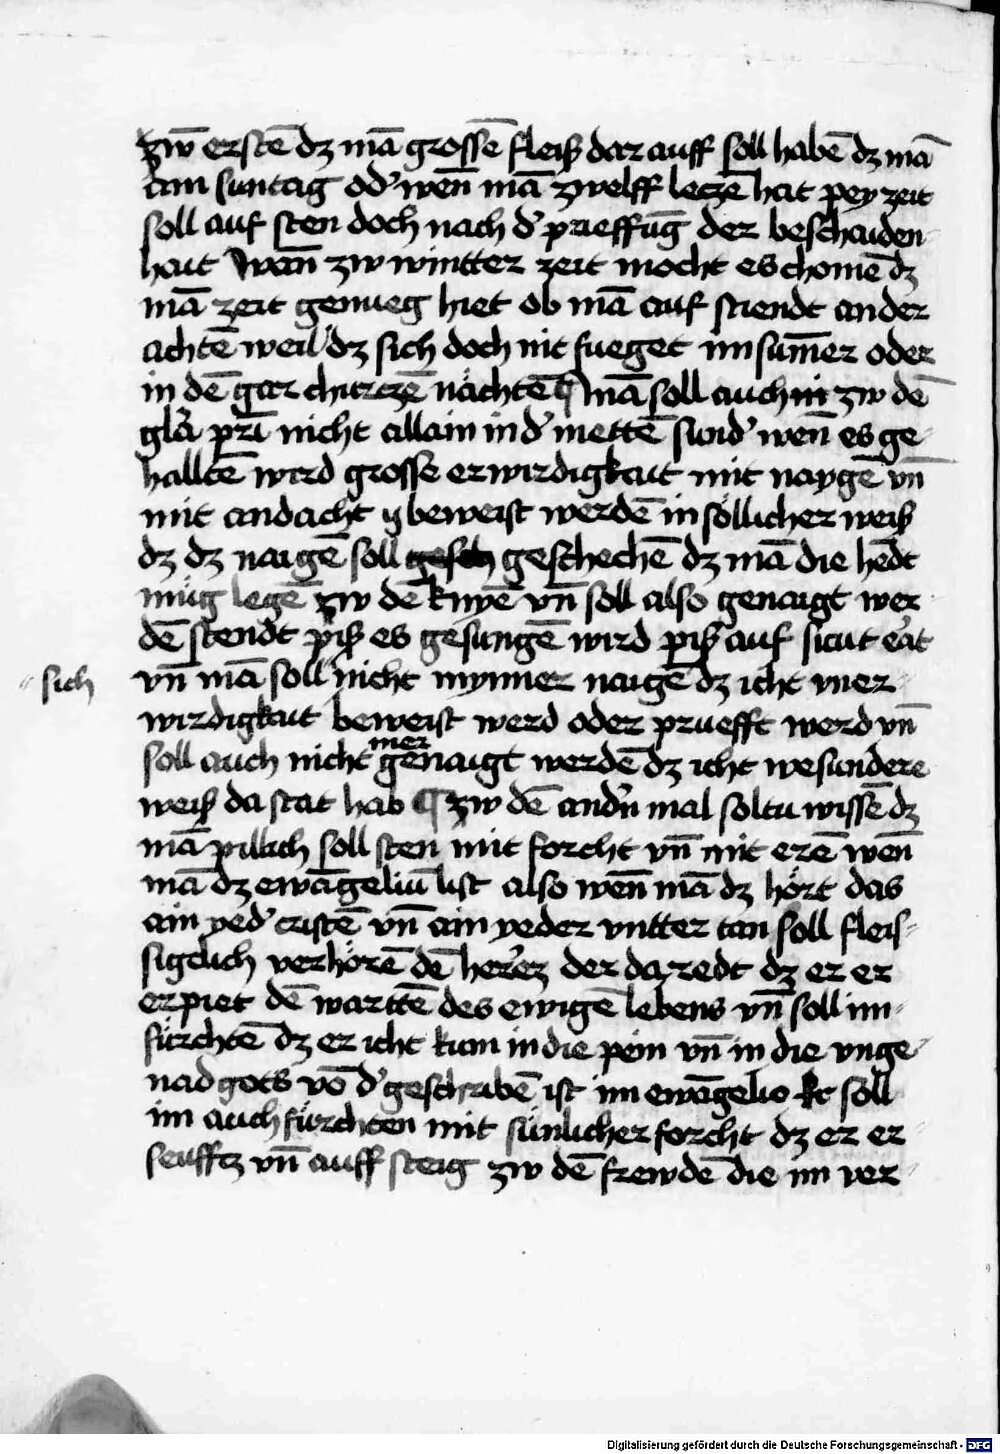 zw̄ erstē dz mā grossē fleiß dar auff soll habē dz mā
am suntag od' wen̄ mā zwelff leczē hat pey zeit
soll auf sten doch nach d' prueffūg der beschaiden
hait Wan̄ zw wintter zeit mocht es chomē dz
mā zeit genueg hiet ob mā auf stiendt an der
achtē weil dz sich doch nit fueget im sum̄er oder
in dē gar churczē nächtē ¶ mā soll auch in zw dē
glā prī nicht allain in d' mettē sund' wen̄ es ge
halltē wird grosse erwirdigkait mit naygē vn̄
mit andacht beweist werdē in söllicher weiß
dz dz naigē soll geschechē dz mā die hēdt
müg legē zw dē knyē vn̄ soll also genaigt wer
dē stendt piß es gesungē wird piß auf sicut erat
sich
vn̄ mā soll nicht mynner naigē dz icht vner
wirdigkait beweist werd oder pruefft werd vn̄
soll auch nicht mer genaigt werdē dz icht wesundere
weiß da stat hab ¶ zw dē and'n mal soltu wissē dz
mā pillich soll sten mit forcht vn̄ mit erē wen̄
mā dz ewāgeliū list also wen̄ mā dz hört das
ain yed' cristē vn̄ ain yeder vntter tan soll fleis
sigclich verhörē dē herrē der da redt dz er er
erpiet dē warttē des ewigē lebens vn̄ soll im
fürchtē dz er icht kum in die pein vn̄ in die vnge
nad gots vō d' geschribē ist im ewāgelio Er soll
im auch fürchten mit sünlicher forcht dz er er
seufftz vn̄ auff steig zw dē frewdē die im ver